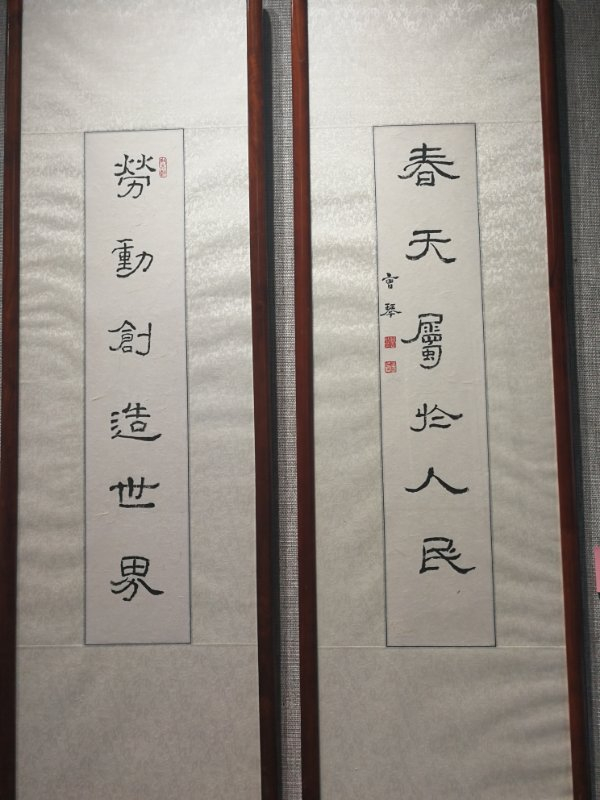 勞動創造世界
春天屬於人民
琴